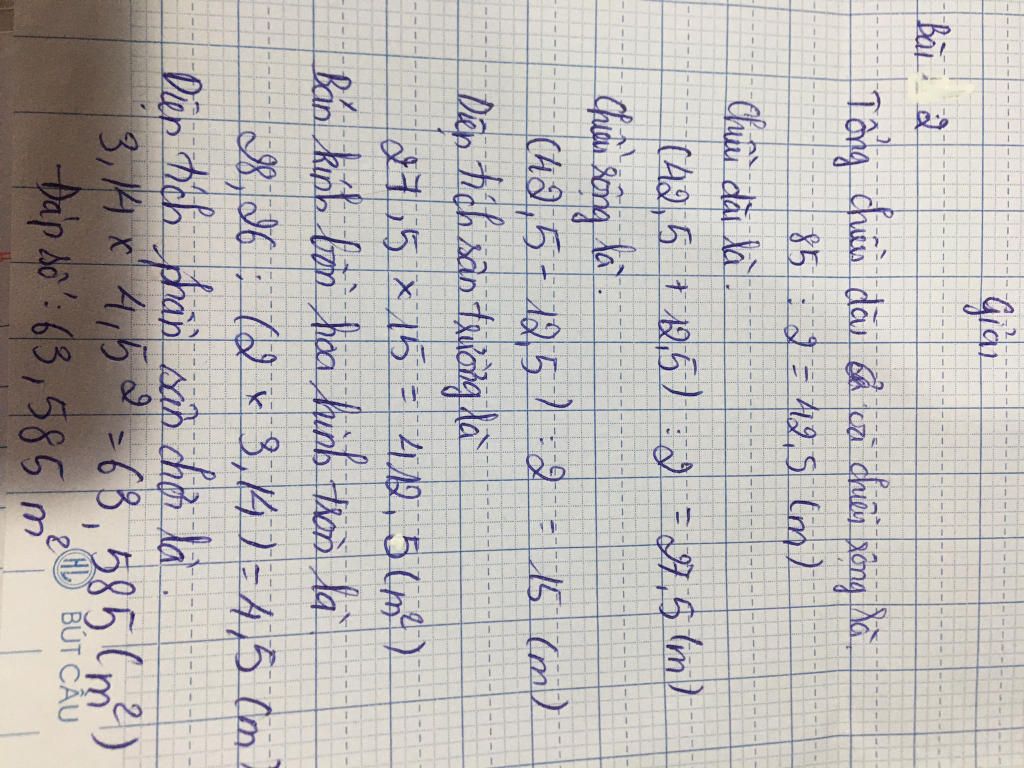 Bài 2
Giải
Tổng chiều dài và chiều rộng là
85 : 2 = 42,5 (m)
Chiều dài là.
(42,5 + 12,5) : 2 = 27,5 (m)
Chiều rộng là.
(42,5 - 12,5) : 2 = 15 (m)
Diện tích sân trường là
27,5 x 15 = 412,5 (m²)
Bán kính bồn hoa hình tròn là
28,26 : (2 x 3,14) = 4,5 (m)
Diện tích phần sân chơi là.
3,14 x 4,5² = 63,585 (m²)
Đáp số : 63,585 m²
HL BÚT CẦU